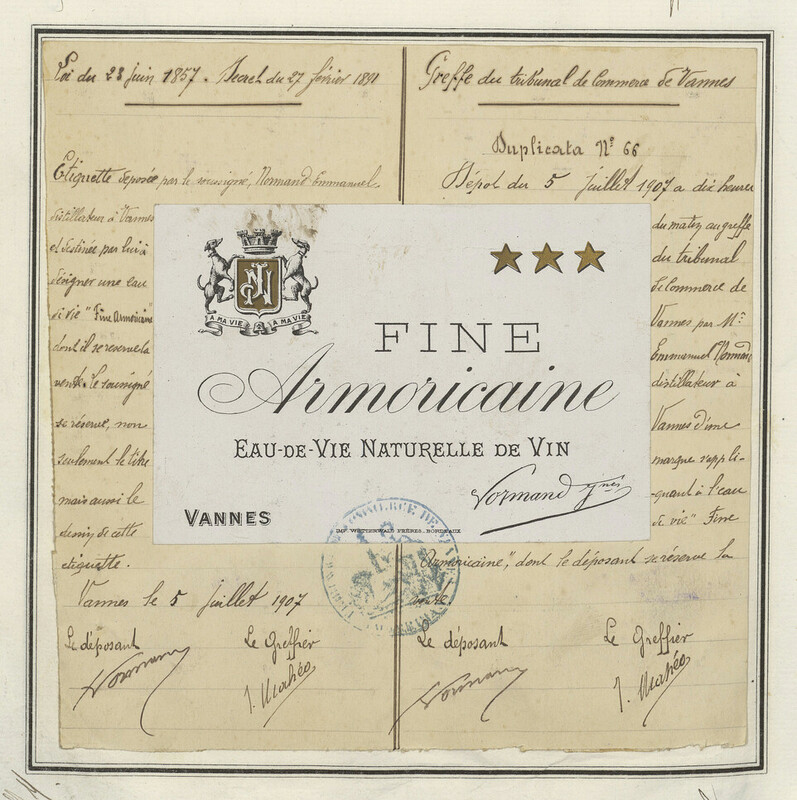 Loi du 23 Juin 1857. Decret du 27 février 1891
Etiquette deposée par le soussigné, Normand Emmanuel
distillateur à Vannes
et destinée par lui à
désigner une eau
de vie "Fine Armoricaine"
dont il se reserve la
vente. Le sousigné
se réserve, non
seulement le titre
mais aussi le
dessin de cette
etiquette.
Vannes le 5 Juillet 1907
Le déposant
Normand
Le Greffier
J. Mahéo
Greffe du tribunal de Commerce de Vannes
Duplicata Nº 66
Dépot du 5 Juillet 1907 a dix heures
du matin au greffe
du tribunal
de Commerce de
Vannes par Mr
Emmanuel Normand
distillateur à
Vannes d'une
marque s'appli-
-quant à l'eau
de vie "Fine
Armoricaine", dont le déposant se réserve la
vente.
Le déposant
Normand
Le Greffier
J. Mahéo
NJ
A MA VIE A MA VIE
FINE
Armoricaine
EAU-DE-VIE NATURELLE DE VIN
Normand Jnes
VANNES
IMP. WETTERWALD FRÈRES, BORDEAUX